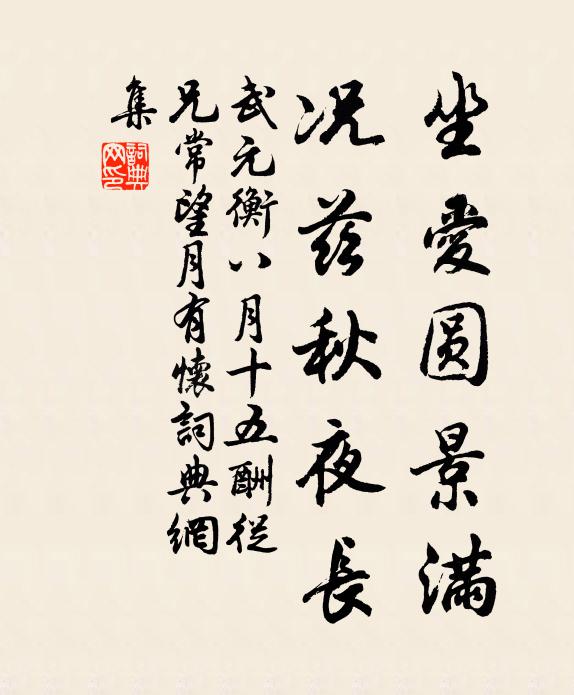 坐愛圓景滿
况茲秋夜長
武元衡八月十五酬從
兄常望月有懷詞典網
集
詞典網印